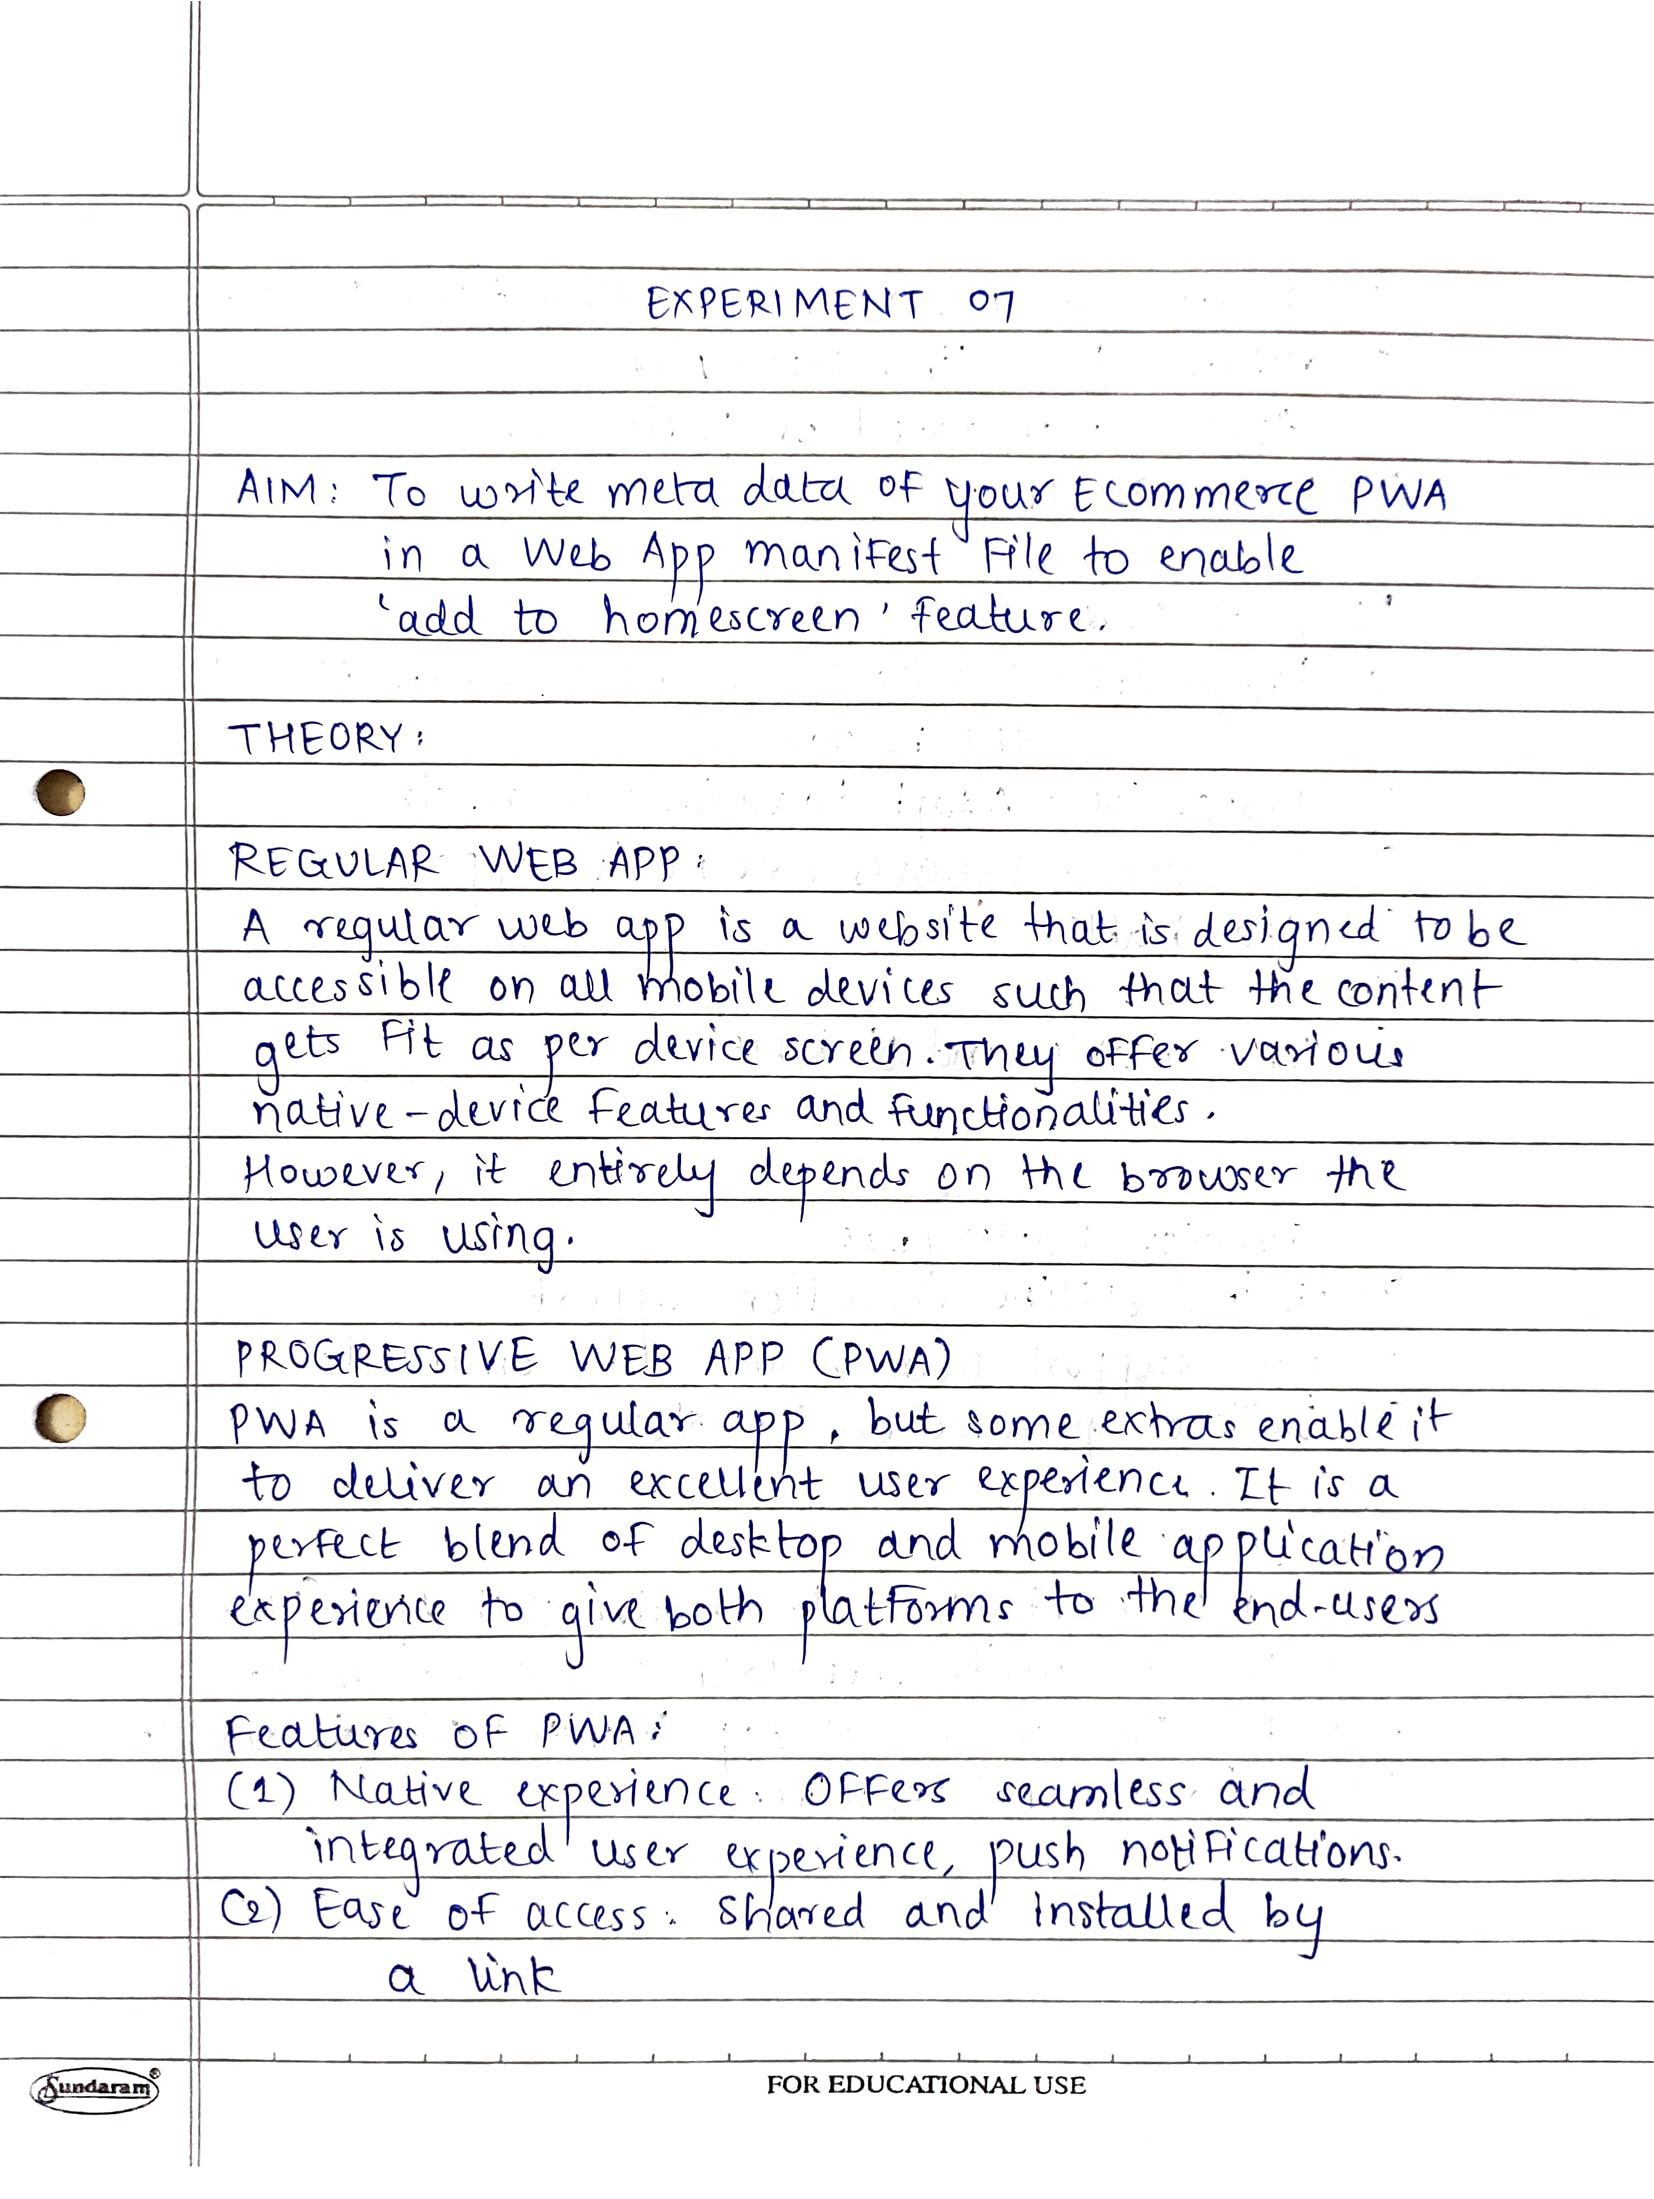 EXPERIMENT 07
AIM: To write meta data of your Ecommerce PWA
in a Web App manifest File to enable
'add to homescreen' feature.
THEORY:
REGULAR WEB APP:
A regular web app is a website that is designed to be
accessible on all mobile devices such that the content
gets Fit as per device screen. They offer various
native-device features and functionalities.
However, it entirely depends on the browser the
user is using.
PROGRESSIVE WEB APP (PWA)
PWA is a regular app, but some extras enable it
to deliver an excellent user experience. It is a
perfect blend of desktop and mobile application
experience to give both platforms to the end-users
Features of PWA:
(1) Native experience: Offers seamless and
integrated user experience, push notifications.
(2) Ease of access: shared and installed by
a link
Sundaram®
FOR EDUCATIONAL USE